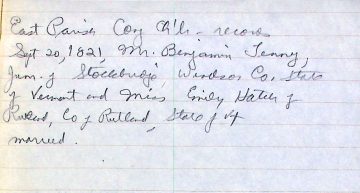 East Parish Cong Ch'h - records
Sept 20, 1821, Mr. Benjamin Tenny,
Junr. of Stockbridge, Windsor Co, State
of Vermont and Miss Emily Hatch of
Rutland, Co of Rutland, State of Vt
married.